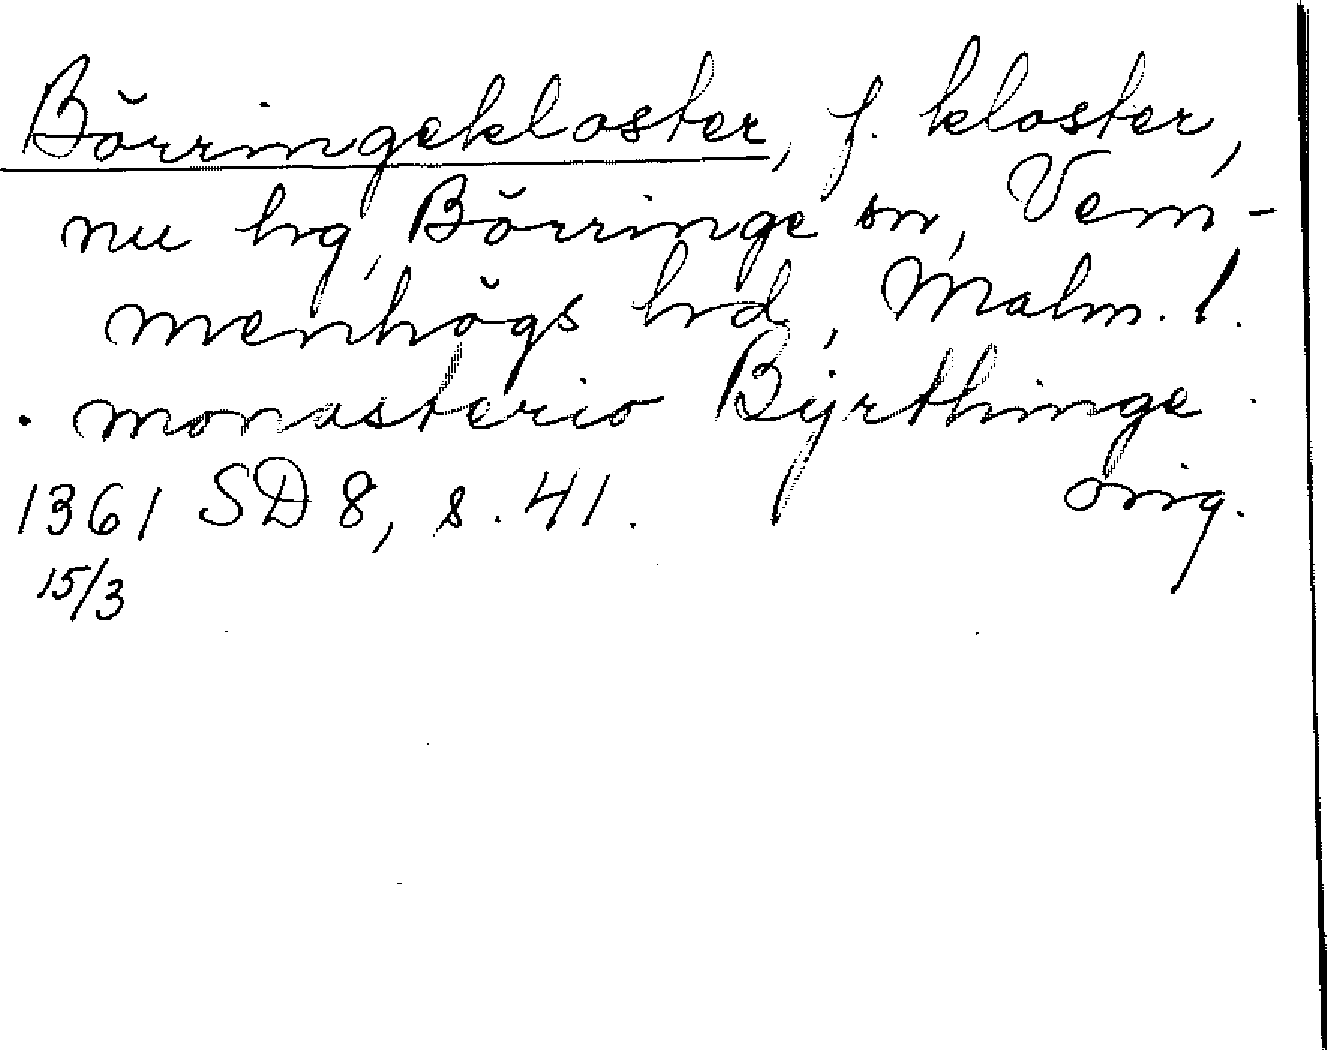 Börringekloster, f. kloster,
nu hrg, Börringe sn, Vem-
menhögs hrd, Malm. l.
. monasterio Byrthinge
1361 SD 8, s. 41. orig.
15/3